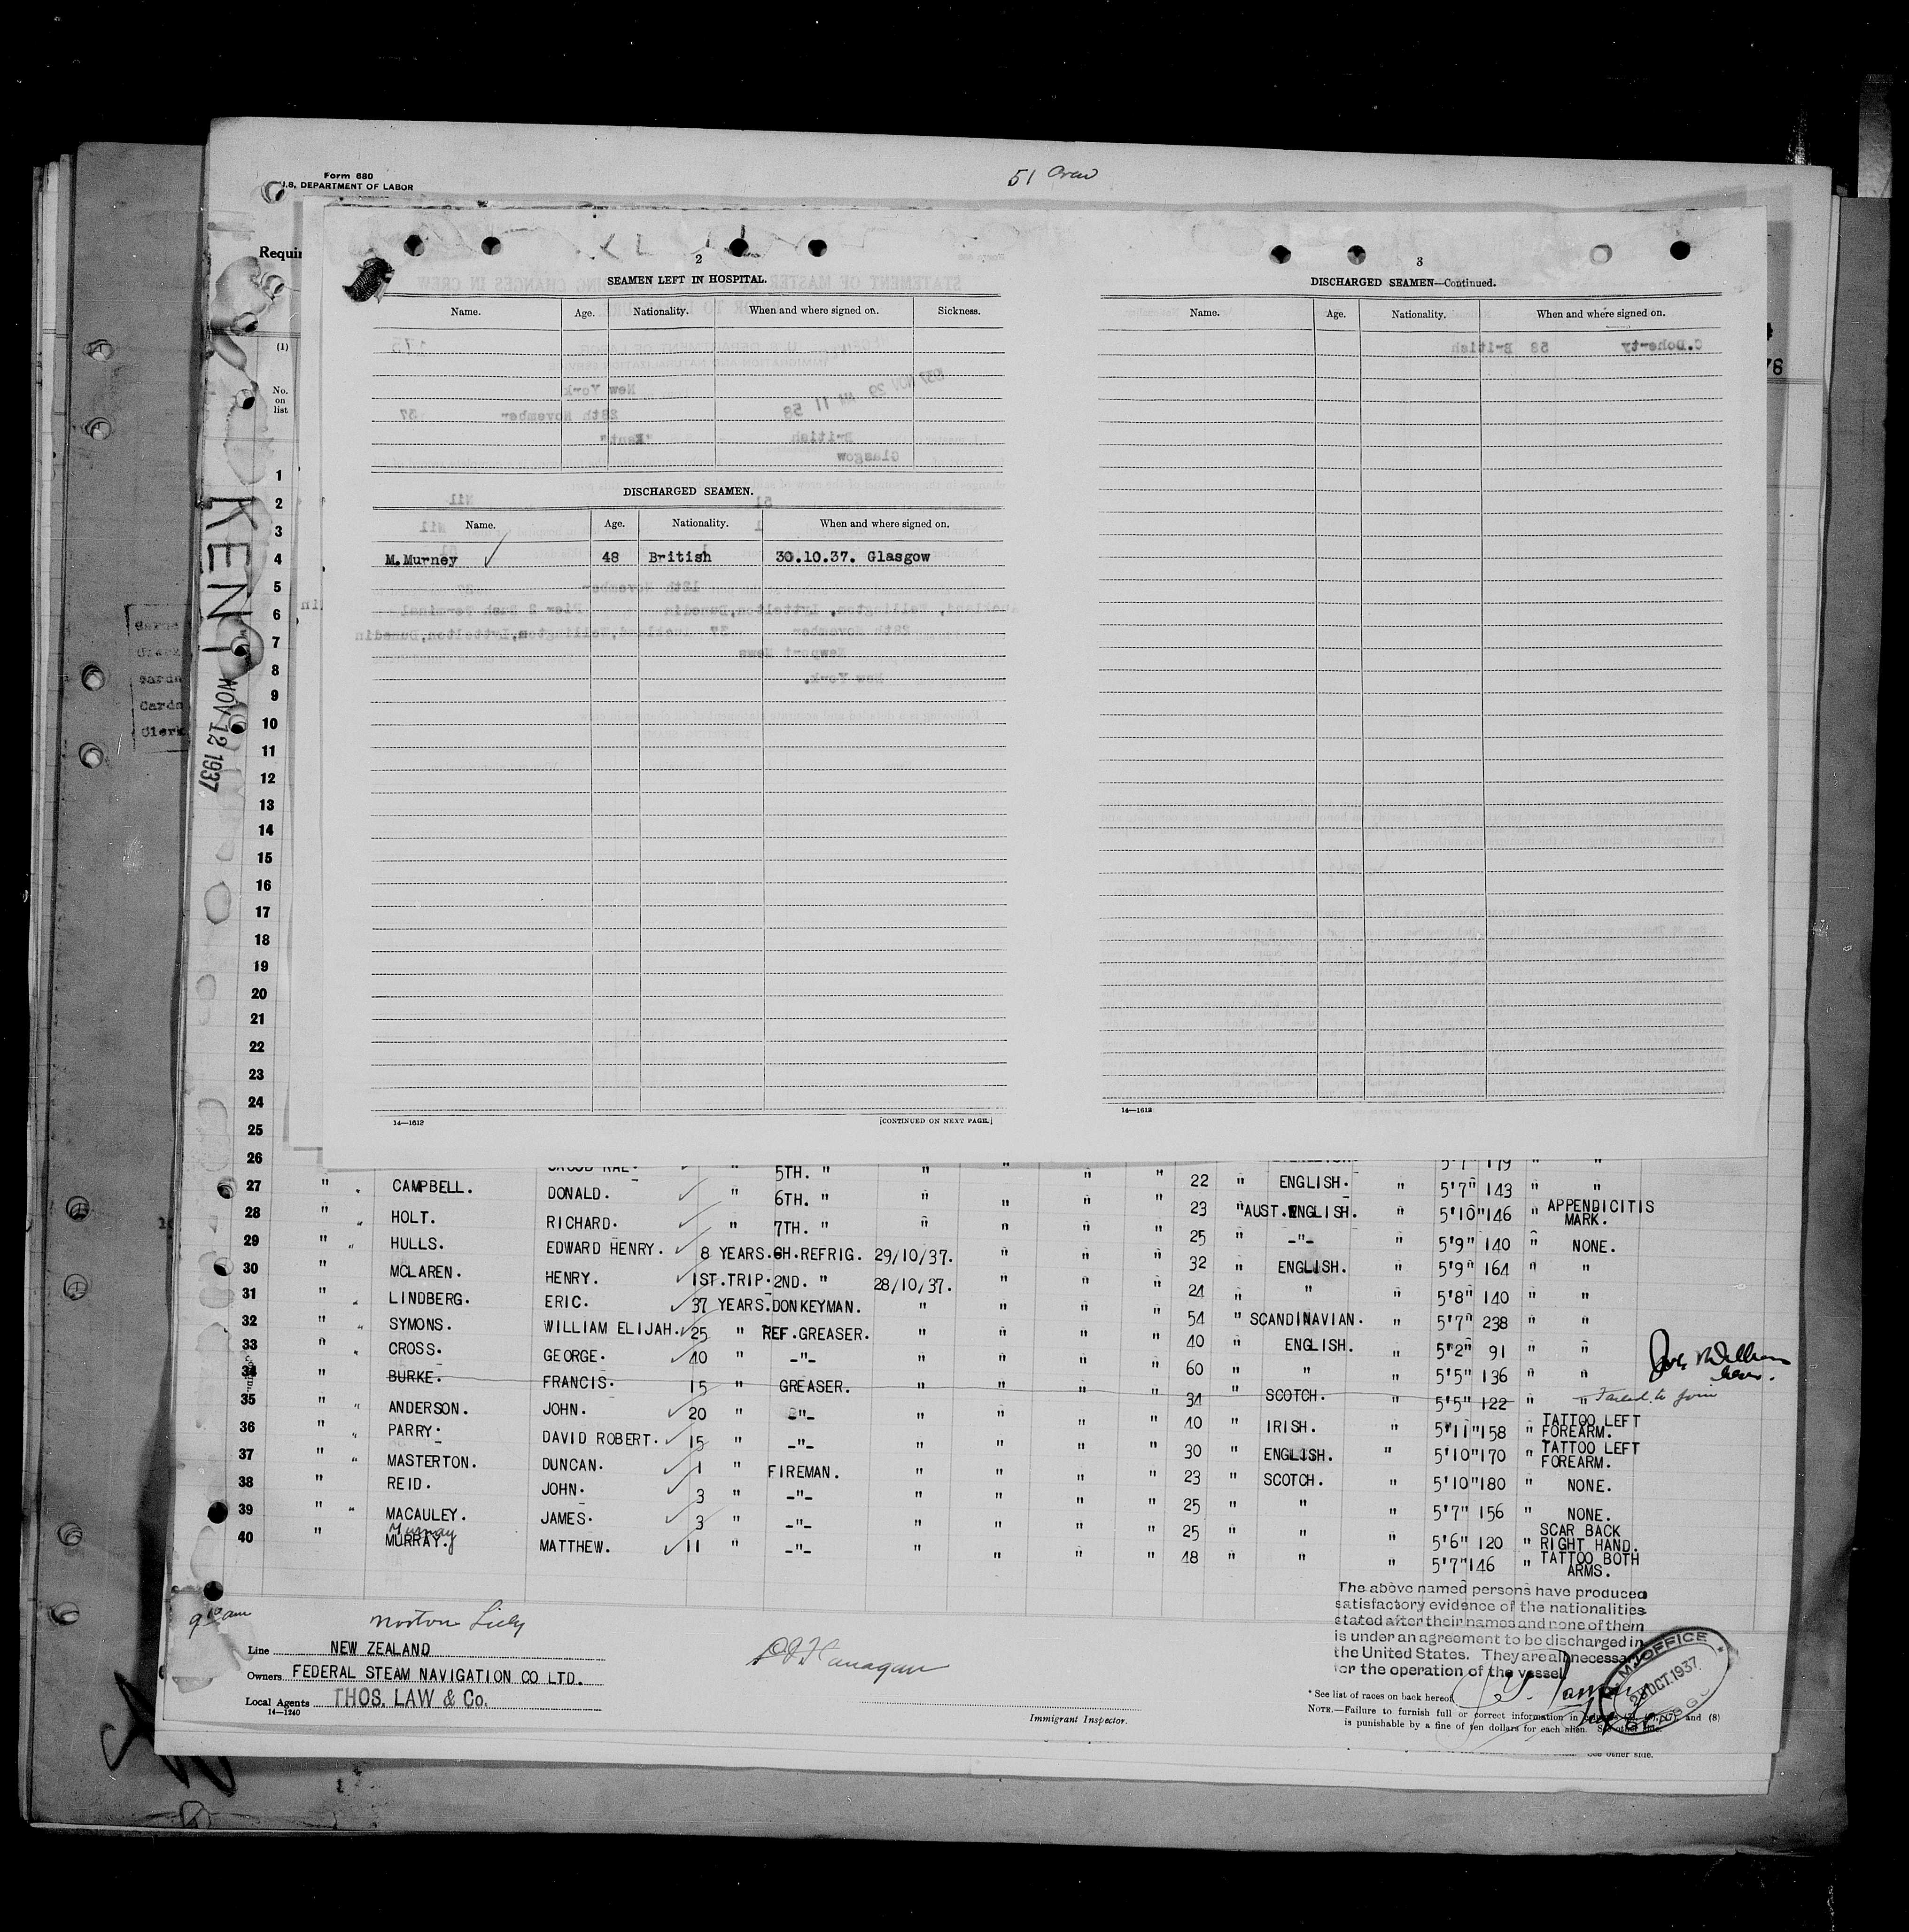 Form 680
U.S. DEPARTMENT OF LABOR
51 Crew
Requir
2
SEAMEN LEFT IN HOSPITAL.
Name. Age. Nationality. When and where signed on. Sickness.
DISCHARGED SEAMEN.
Name. Age. Nationality. When and where signed on.
M. Murney ✓ 48 British 30.10.37. Glasgow
14—1612 [CONTINUED ON NEXT PAGE.]
3
DISCHARGED SEAMEN—Continued.
Name. Age. Nationality. When and where signed on.
C.Doherty 58 British
14—1612
(1)
No.
on
list
KENT
NOV 12 1937
1
2
3
4
5
6
7
8
9
10
11
12
13
14
15
16
17
18
19
20
21
22
23
24
25
26 5TH. " " " " 5'7" 179 " "
27 " CAMPBELL. DONALD. ✓ " 6TH. " " " " " 22 " ENGLISH. " 5'7" 143 " "
28 " HOLT. RICHARD. ✓ " 7TH. " " " " " 23 " AUST. ENGLISH. " 5'10" 146 " APPENDICITIS MARK.
29 " HULLS. EDWARD HENRY. ✓ 8 YEARS. CH.REFRIG. 29/10/37. " " " 25 " -"- " 5'9" 140 " NONE.
30 " MCLAREN. HENRY. ✓ 1ST.TRIP. 2ND. " 28/10/37. " " " 32 " ENGLISH. " 5'9" 164 " "
31 " LINDBERG. ERIC. ✓ 37 YEARS. DONKEYMAN. " " " " 24 " " " 5'8" 140 " "
32 " SYMONS. WILLIAM ELIJAH. ✓ 25 " REF.GREASER. " " " " 54 " SCANDINAVIAN. " 5'7" 238 " "
33 " CROSS. GEORGE. ✓ 40 " -"- " " " " 40 " ENGLISH. " 5'2" 91 " "
34 " BURKE. FRANCIS. 15 " GREASER. " " " " 60 " " " 5'5" 136 " "
35 " ANDERSON. JOHN. ✓ 20 " -"- " " " " 34 " SCOTCH. " 5'5" 122 " " Failed to join
36 " PARRY. DAVID ROBERT. ✓ 15 " -"- " " " " 40 " IRISH. " 5'11" 158 " TATTOO LEFT FOREARM.
37 " MASTERTON. DUNCAN. ✓ 1 " FIREMAN. " " " " 30 " ENGLISH. " 5'10" 170 " TATTOO LEFT FOREARM.
38 " REID. JOHN. ✓ 3 " -"- " " " " 23 " SCOTCH. " 5'10" 180 " NONE.
39 " MACAULEY. JAMES. ✓ 3 " -"- " " " " 25 " " " 5'7" 156 " NONE.
40 " MURRAY. MATTHEW. ✓ 11 " -"- " " " " 25 " " " 5'6" 120 " SCAR BACK RIGHT HAND.
48 " " " 5'7" 146 " TATTOO BOTH ARMS.
9 10 am
Norton Lilly
Line NEW ZEALAND
Owners FEDERAL STEAM NAVIGATION CO LTD.
Local Agents THOS. LAW & Co.
14—1240
Immigrant Inspector.
The above named persons have produced
satisfactory evidence of the nationalities
stated after their names and none of them
is under an agreement to be discharged in
the United States. They are all necessary
for the operation of the vessel
OFFICE
29 OCT. 1937
* See list of races on back hereof.
NOTE.—Failure to furnish full or correct information in columns and (8)
is punishable by a fine of ten dollars for each alien. See other side.
See other side.